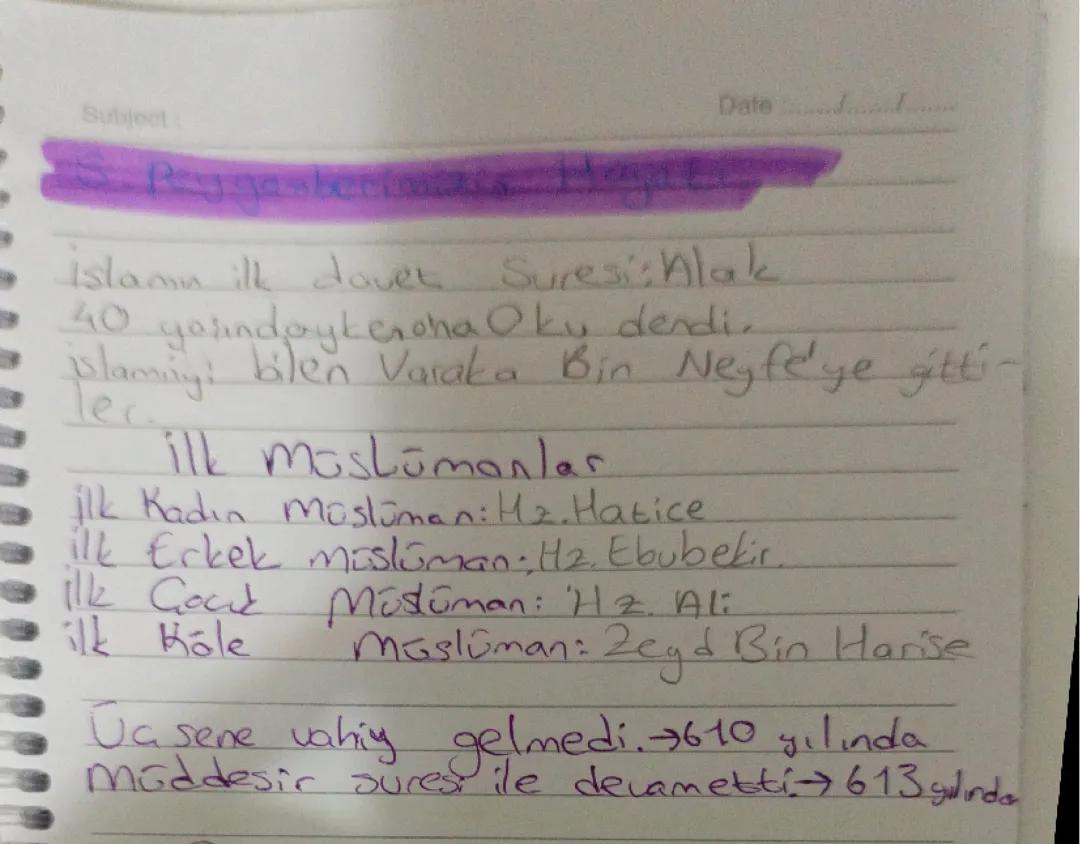 Subject :
Date :....../....../......
S. Peygamberimizin Hayatı
islamın ilk davet Suresi: Alak
40 yaşındayken ona Oku dendi.
islamiyi bilen Varaka Bin Neyfe'ye gitti-
ler.
ilk müslümanlar
ilk Kadın müslüman: Hz. Hatice
ilk Erkek müslüman: Hz. Ebubekir.
ilk Çocuk Müslüman: Hz. Ali
ilk Köle müslüman: Zeyd Bin Harise
Üç sene vahiy gelmedi.→610 yılında
müddesir suresi ile devametti.→613 yılında